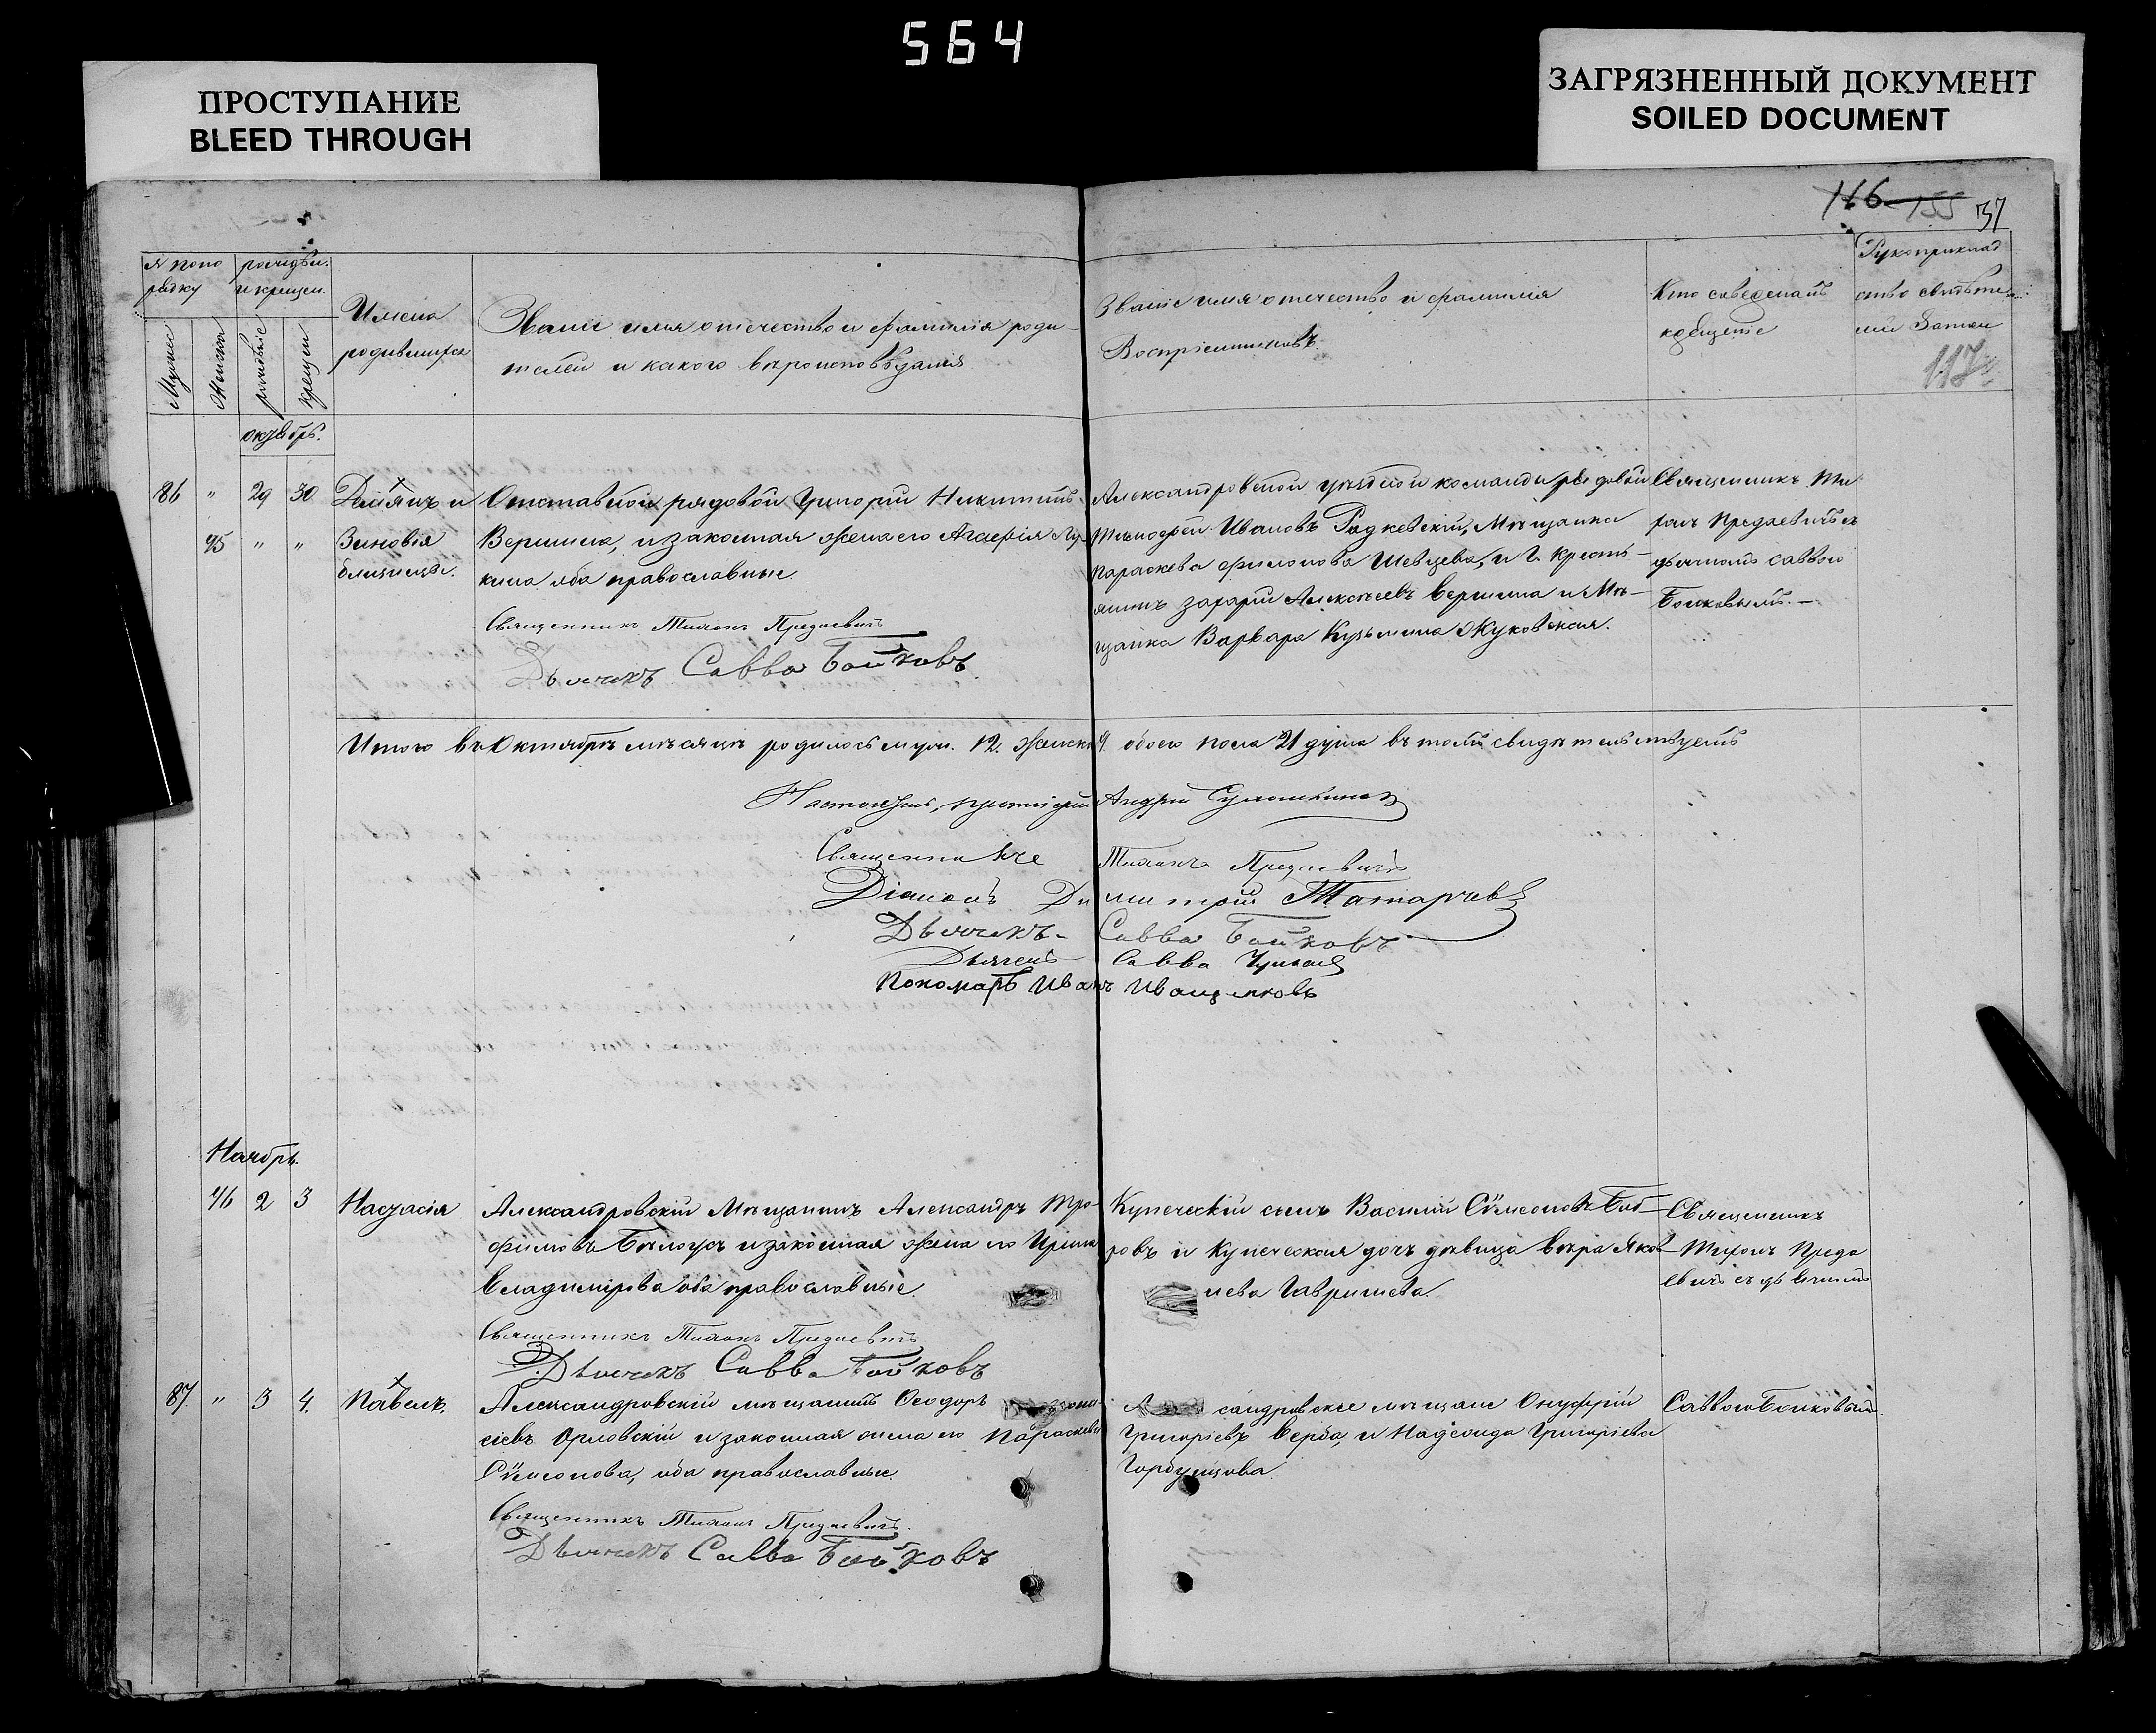 564
ПРОСТУПАНИЕ
BLEED THROUGH
ЗАГРЯЗНЕННЫЙ ДОКУМЕНТ
SOILED DOCUMENT
116 155 37
117
Имена
родившихся
Званіе имя отечество и фамилія роди-
телей и какого вѣроисповѣданія
Званіе имя отечество и фамилія
Воспріемниковъ
Кто совершалъ
крещеніе
Рукоприклад
ство свидѣте-
октябрь.
86 " 29 30 и
45 " " Зиновія
близнецы.
Отставной рядовой Григорій Никитинъ
Вершина, и законная жена его Агафія Лу-
кина оба православные.
Священникъ Тихонъ Предаевичъ
Дьячекъ Савва Бойковъ
Александровской уѣздной команды рядовой
Тимофей Ивановъ Радкевскій, Мѣщанка
Параскева Филонова Шевцева, и Г. кресть-
янинъ Захарій Алексѣевъ Вершина и Мѣ-
щанка Варвара Кузьмина Жуковская.
Священникъ Ти
хонъ Предаевичъ съ
дьячкомъ Саввою
Бойковымъ.-
Итого въ Октябрѣ мѣсяцѣ родилось муж. 12. женск. 9. обоего пола 21 душа въ томъ свидѣтельствуетъ
Настоятель, протоіерей Андрей
Священникъ Тихонъ Предаевичъ
Діаконъ Димитрій Татарчев
Дьячекъ- Савва Бойковъ
Дьячекъ Савва
Пономарь Иванъ Иващенковъ
Ноябрь.
46 2 3 Настасія
Александровскій Мѣщанинъ Александръ Тро-
фимовъ Бѣлоусъ и законная жена его Ирина
Владимірова оба православные.
Священникъ Тихонъ Предаевичъ
Дьячекъ Савва Бойковъ
Купеческій сынъ Василій Сѵмеоновъ Боб-
ровъ и купеческая дочь дѣвица Вѣра Яков
лева Гавришева.
Священникъ
Тихонъ Преда
евичъ съ дьячкомъ
87. " 3 4. Павелъ.
Александровскій мѣщанинъ Ѳеодоръ
сіевъ Орловскій и законная жена его Параскева
Сѵмеонова, оба православные.
Священникъ Тихонъ Предаевичъ.
Дьячекъ Савва Бойковъ
сандровскіе мѣщане Онуфрій
Григоріевъ Верба, и Надежда Григоріева
Горбунцова.
Саввою Бойковымъ.